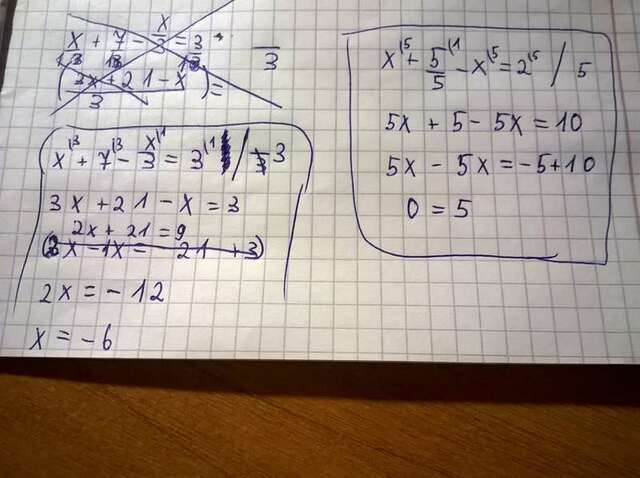 x/3 + 7/3 - x/3 = 3/3
3
(3x + 21 - x)/3 =
x|3 + 7|3 - x/3|1 = 3|1 / 3
3x + 21 - x = 3
2x + 21 = 9
(3x - 1x = 21 + 3)
2x = - 12
x = - 6
x|5 + 5/5|1 - x|5 = 2|5 / 5
5x + 5 - 5x = 10
5x - 5x = -5+10
0 = 5